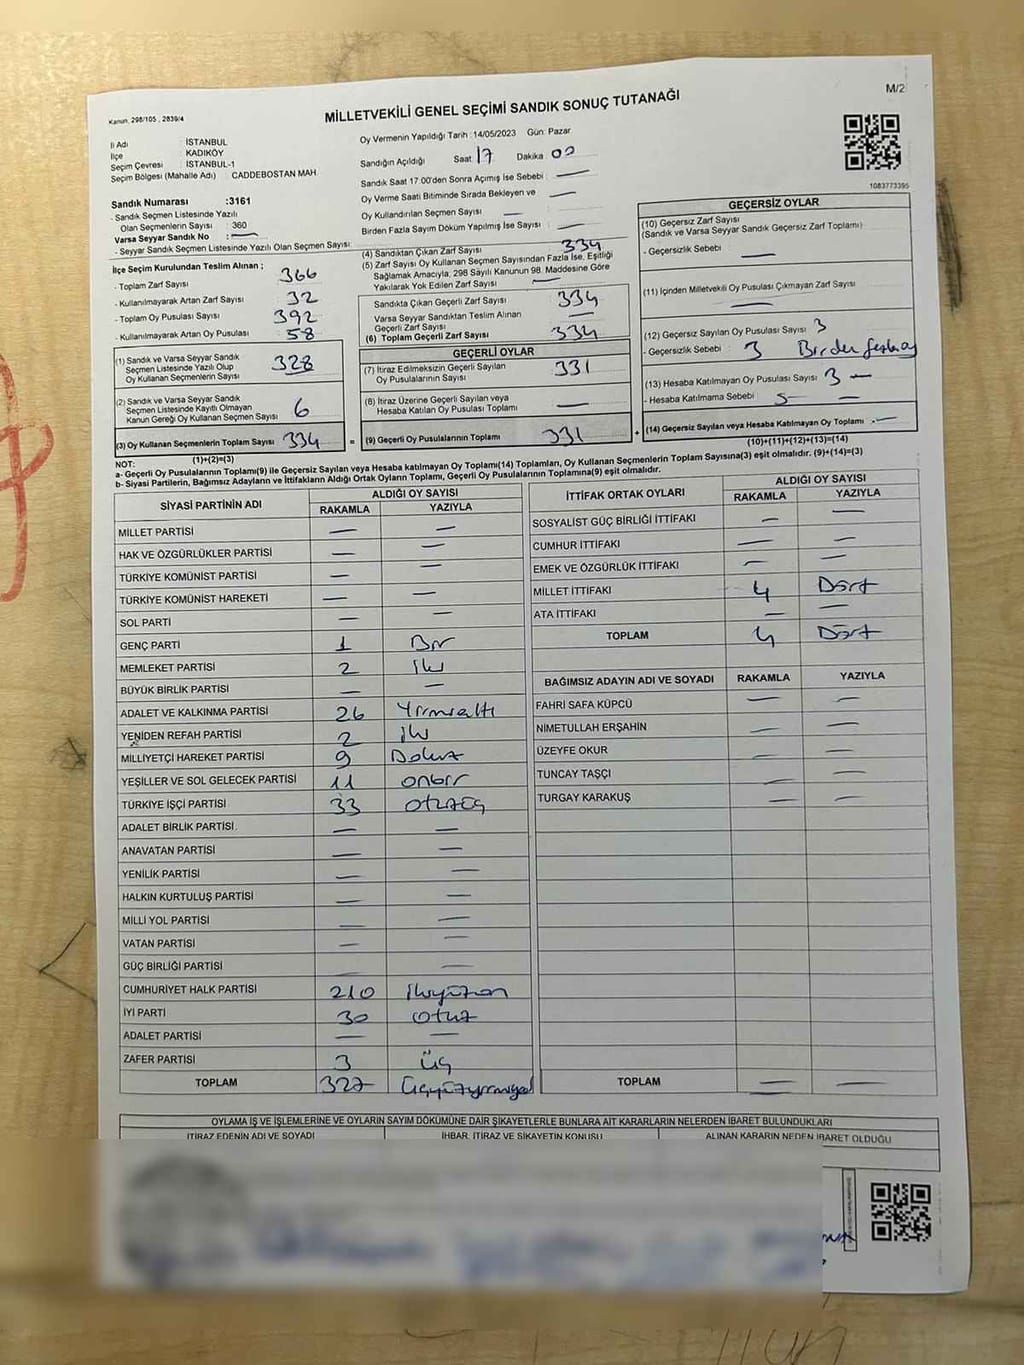 M/2
Kanun, 298/105 , 2839/4
MİLLETVEKİLİ GENEL SEÇİMİ SANDIK SONUÇ TUTANAĞI
İl Adı İSTANBUL
İlçe KADIKÖY
Seçim Çevresi İSTANBUL-1
Seçim Bölgesi (Mahalle Adı) : CADDEBOSTAN MAH.
Sandık Numarası :3161
- Sandık Seçmen Listesinde Yazılı
Olan Seçmenlerin Sayısı : 360
Varsa Seyyar Sandık No : —
- Seyyar Sandık Seçmen Listesinde Yazılı Olan Seçmen Sayısı
Oy Vermenin Yapıldığı Tarih :14/05/2023 Gün: Pazar
Sandığın Açıldığı Saat 17 Dakika 00
Sandık Saat 17.00'den Sonra Açımış İse Sebebi : —
Oy Verme Saati Bitiminde Sırada Bekleyen ve —
Oy Kullandırılan Seçmen Sayısı —
Birden Fazla Sayım Döküm Yapılmış İse Sayısı : —
1083773395
İlçe Seçim Kurulundan Teslim Alınan ;
- Toplam Zarf Sayısı 366
- Kullanılmayarak Artan Zarf Sayısı 32
- Toplam Oy Pusulası Sayısı 392
- Kullanılmayarak Artan Oy Pusulası 58
(1) Sandık ve Varsa Seyyar Sandık
Seçmen Listesinde Yazılı Olup
Oy Kullanan Seçmenlerin Sayısı 328
(2) Sandık ve Varsa Seyyar Sandık
Seçmen Listesinde Kayıtlı Olmayan
Kanun Gereği Oy Kullanan Seçmen Sayısı 6
(3) Oy Kullanan Seçmenlerin Toplam Sayısı 334 =
(1)+(2)=(3)
(4) Sandıktan Çıkan Zarf Sayısı 334
(5) Zarf Sayısı Oy Kullanan Seçmen Sayısından Fazla İse, Eşitliği
Sağlamak Amacıyla, 298 Sayılı Kanunun 98. Maddesine Göre
Yakılarak Yok Edilen Zarf Sayısı : —
Sandıkta Çıkan Geçerli Zarf Sayısı 334
Varsa Seyyar Sandıktan Teslim Alınan
Geçerli Zarf Sayısı —
(6) Toplam Geçerli Zarf Sayısı 334
GEÇERLİ OYLAR
(7) İtiraz Edilmeksizin Geçerli Sayılan
Oy Pusulalarının Sayısı 331
(8) İtiraz Üzerine Geçerli Sayılan veya
Hesaba Katılan Oy Pusulası Toplamı —
(9) Geçerli Oy Pusulalarının Toplamı 331 +
GEÇERSİZ OYLAR
(10) Geçersiz Zarf Sayısı
(Sandık ve Varsa Seyyar Sandık Geçersiz Zarf Toplamı)
- Geçersizlik Sebebi : —
(11) İçinden Milletvekili Oy Pusulası Çıkmayan Zarf Sayısı
—
(12) Geçersiz Sayılan Oy Pusulası Sayısı 3
- Geçersizlik Sebebi : 3
(13) Hesaba Katılmayan Oy Pusulası Sayısı 3 —
- Hesaba Katılmama Sebebi : —
(14) Geçersiz Sayılan veya Hesaba Katılmayan Oy Toplamı : —
(10)+(11)+(12)+(13)=(14)
NOT:
a- Geçerli Oy Pusulalarının Toplamı(9) ile Geçersiz Sayılan veya Hesaba katılmayan Oy Toplamı(14) Toplamları, Oy Kullanan Seçmenlerin Toplam Sayısına(3) eşit olmalıdır. (9)+(14)=(3)
b- Siyasi Partilerin, Bağımsız Adayların ve İttifakların Aldığı Ortak Oyların Toplamı, Geçerli Oy Pusulalarının Toplamına(9) eşit olmalıdır.
SİYASİ PARTİNİN ADI ALDIĞI OY SAYISI
RAKAMLA YAZIYLA
MİLLET PARTİSİ — —
HAK VE ÖZGÜRLÜKLER PARTİSİ — —
TÜRKİYE KOMÜNİST PARTİSİ — —
TÜRKİYE KOMÜNİST HAREKETİ — —
SOL PARTİ — —
GENÇ PARTİ 1 Bir
MEMLEKET PARTİSİ 2 iki
BÜYÜK BİRLİK PARTİSİ — —
ADALET VE KALKINMA PARTİSİ 26 Yirmialtı
YENİDEN REFAH PARTİSİ 2 iki
MİLLİYETÇİ HAREKET PARTİSİ 9 Dokuz
YEŞİLLER VE SOL GELECEK PARTİSİ 11 onbir
TÜRKİYE İŞÇİ PARTİSİ 33 otuzüç
ADALET BİRLİK PARTİSİ — —
ANAVATAN PARTİSİ — —
YENİLİK PARTİSİ — —
HALKIN KURTULUŞ PARTİSİ — —
MİLLİ YOL PARTİSİ — —
VATAN PARTİSİ — —
GÜÇ BİRLİĞİ PARTİSİ — —
CUMHURİYET HALK PARTİSİ 210 ikiyüzon
İYİ PARTİ 30 otuz
ADALET PARTİSİ — —
ZAFER PARTİSİ 3 üç
TOPLAM 327 üçyüzyirmiyedi
İTTİFAK ORTAK OYLARI ALDIĞI OY SAYISI
RAKAMLA YAZIYLA
SOSYALİST GÜÇ BİRLİĞİ İTTİFAKI — —
CUMHUR İTTİFAKI — —
EMEK VE ÖZGÜRLÜK İTTİFAKI — —
MİLLET İTTİFAKI 4 Dört
ATA İTTİFAKI — —
TOPLAM 4 Dört
BAĞIMSIZ ADAYIN ADI VE SOYADI RAKAMLA YAZIYLA
FAHRİ SAFA KÜPCÜ — —
NİMETULLAH ERŞAHİN — —
ÜZEYFE OKUR — —
TUNCAY TAŞÇI — —
TURGAY KARAKUŞ — —
TOPLAM — —
OYLAMA İŞ VE İŞLEMLERİNE VE OYLARIN SAYIM DÖKÜMÜNE DAİR ŞİKAYETLERLE BUNLARA AİT KARARLARIN NELERDEN İBARET BULUNDUKLARI
İTİRAZ EDENİN ADI VE SOYADI İHBAR, İTİRAZ VE ŞİKAYETİN KONUSU ALINAN KARARIN NEDEN İBARET OLDUĞU